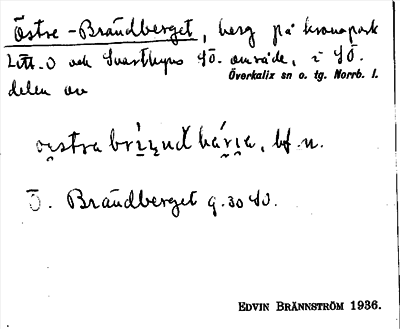 Östre-Brändberget, berg på kronopark
Litt. O och Svartbyns SÖ. område, i SÖ.
Överkalix sn o. tg. Norrb. l.
delen av
Ö. Brändberget g. 30 SO.
EDVIN BRÄNNSTRÖM 1936.